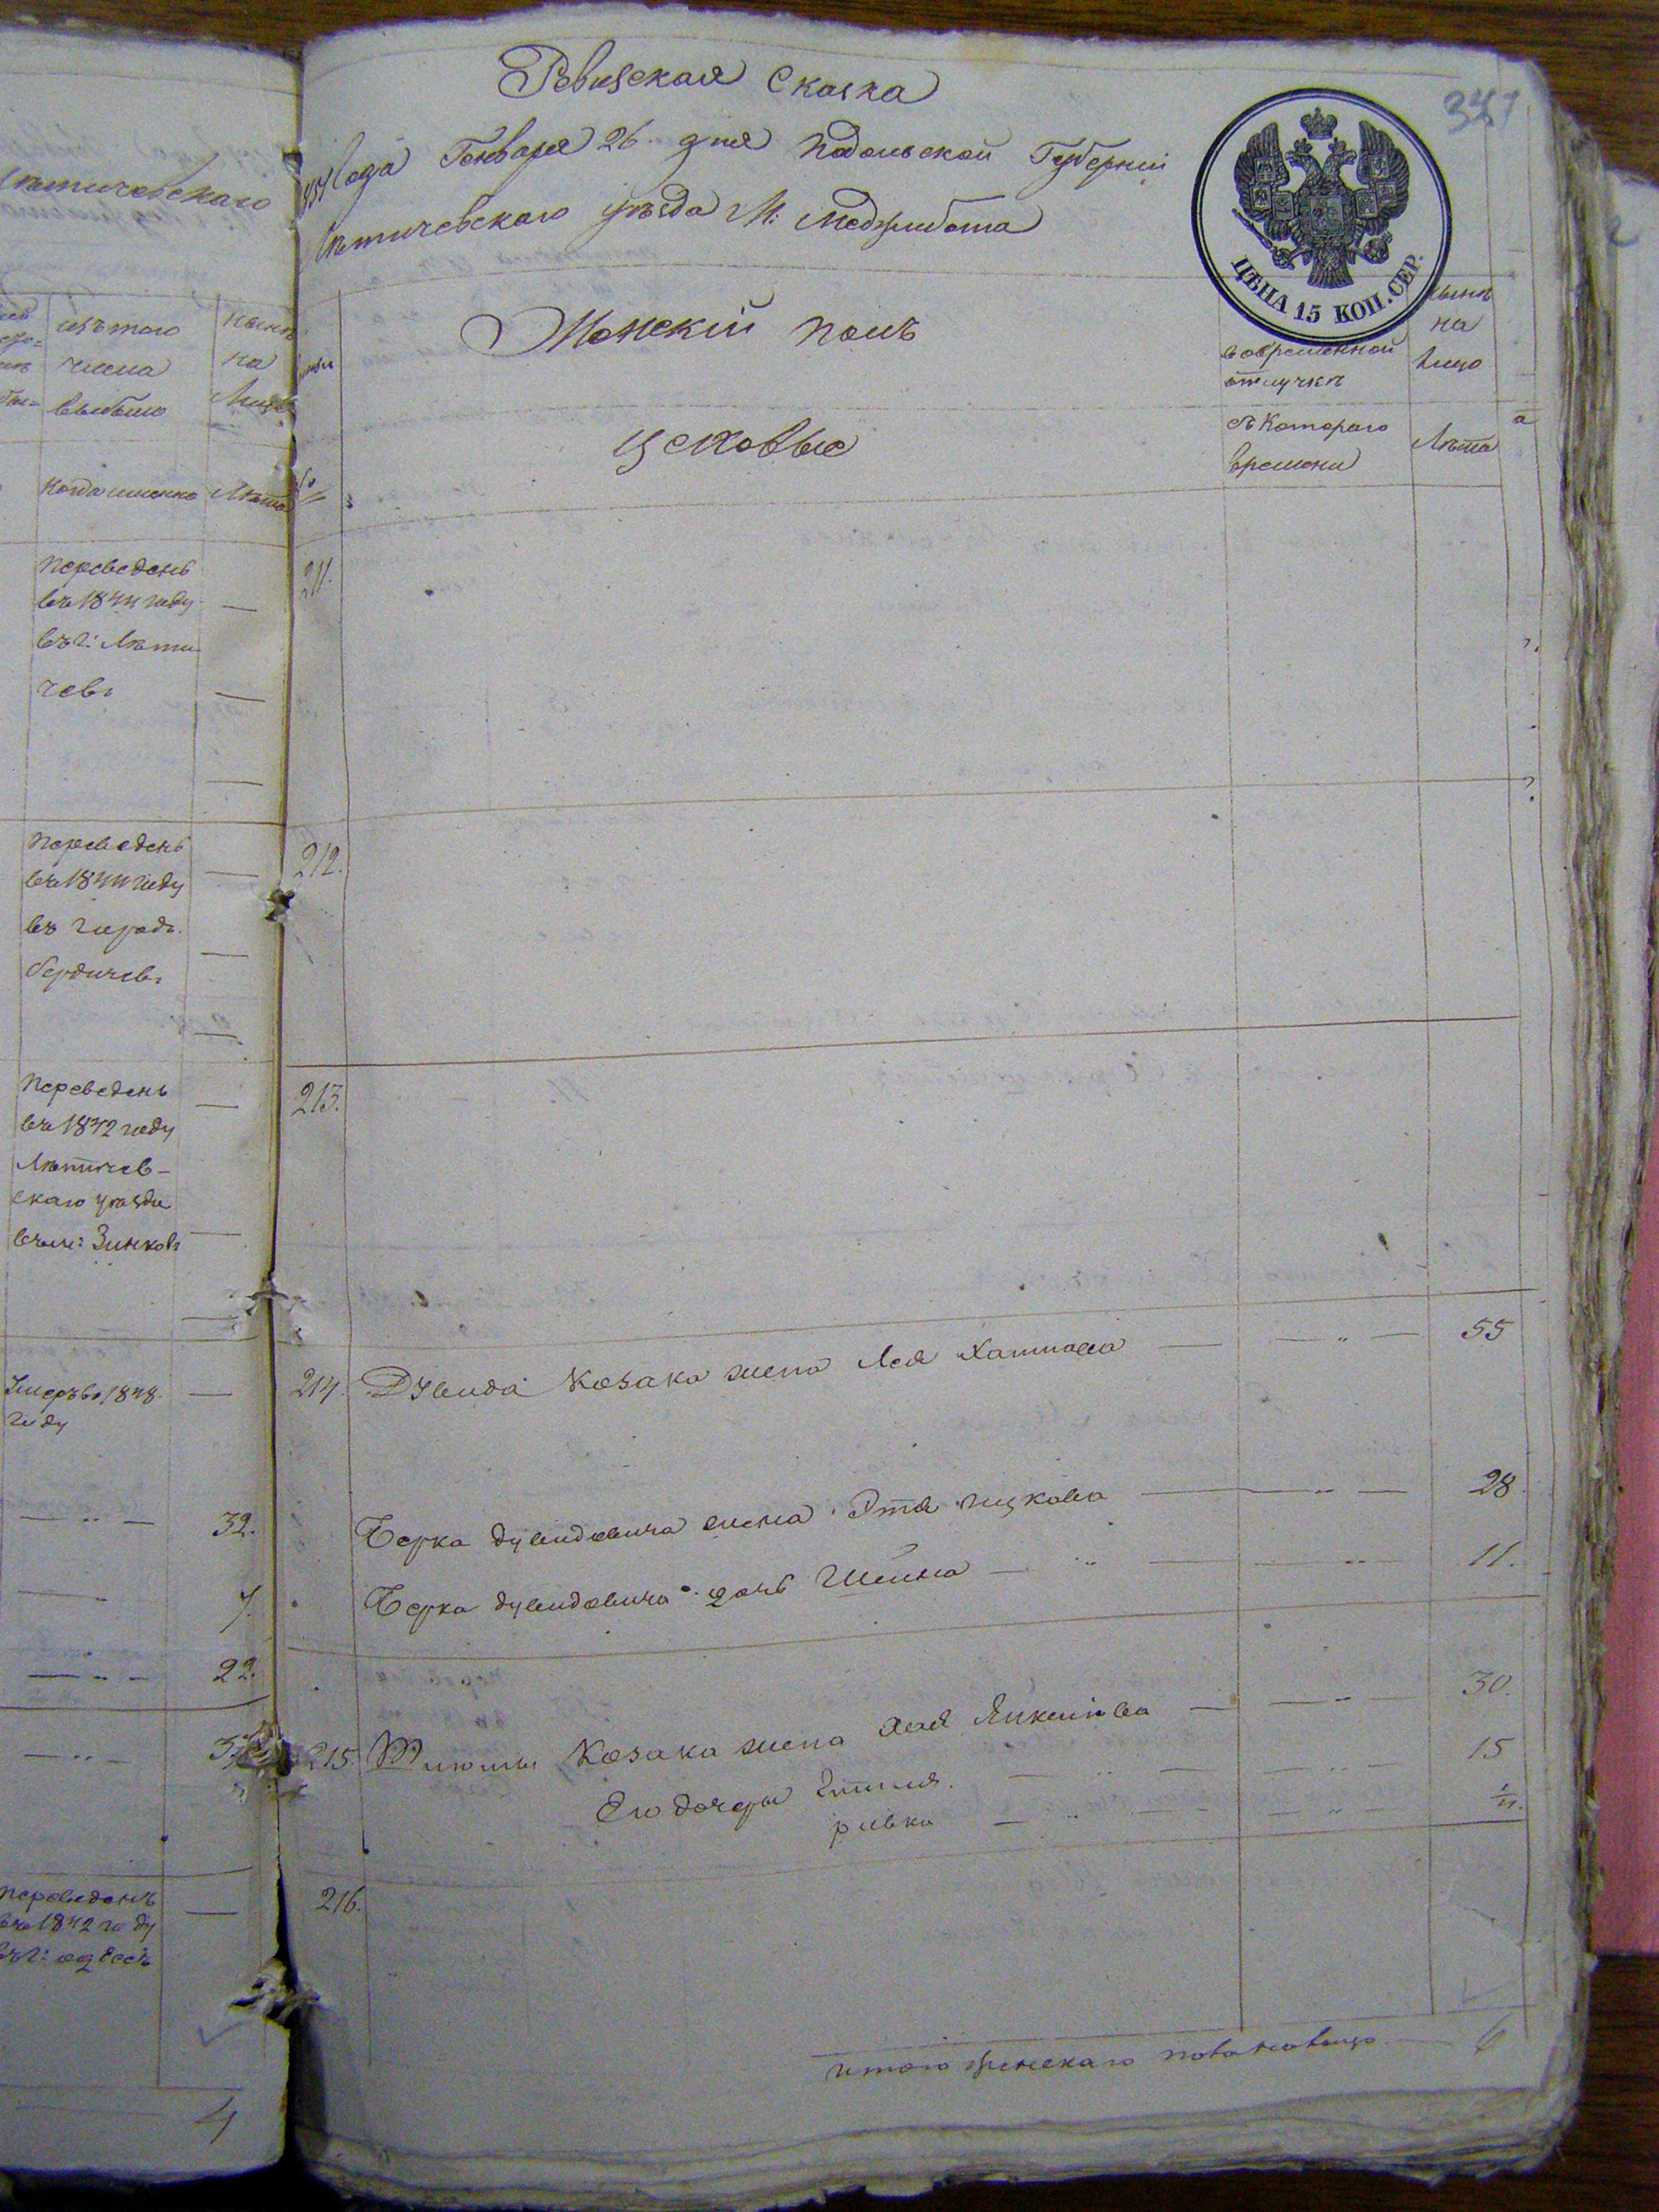 Ревизская Сказка
года Генваря 26 дня Подольской Губерніи
Лѣтичевскаго уѣзда М: Меджибожа
347
ЦѢНА 15 КОП. СЕР.
Женскій полъ
во временной отлучкѣ
нынѣ на лицо
цеховые
съ котораго времени
Лѣта
211.
212.
213.
214. Дувида Козака жена Лея Хаимова — " — 55
Берка Дувидовича жена Этя Ицкова — " — 28
Берка Дувидовича дочь Шейна — " — 11.
215. Козака жена Хая — " — 30.
Его дочери Этиля — " — 15
Ривка — " —
216.
итого женскаго пола на лицо — 6
Лѣтичевскаго
изъ того числа выбыло
нынѣ на лицо
когда именно
Лѣта
Переведенъ
въ 1844 году —
въ г: Лѣти
чевъ —
Переведенъ
въ 1844 году —
въ городъ
Бердичевъ
Переведенъ —
въ 1842 году
Лѣтичев-
скаго уѣзда
въ м: Зинковъ
Умеръ въ 1848 —
году
— " — 32.
7.
— " — 22.
— " —
Переведенъ —
въ 1842 году
въ г: Одессъ
4